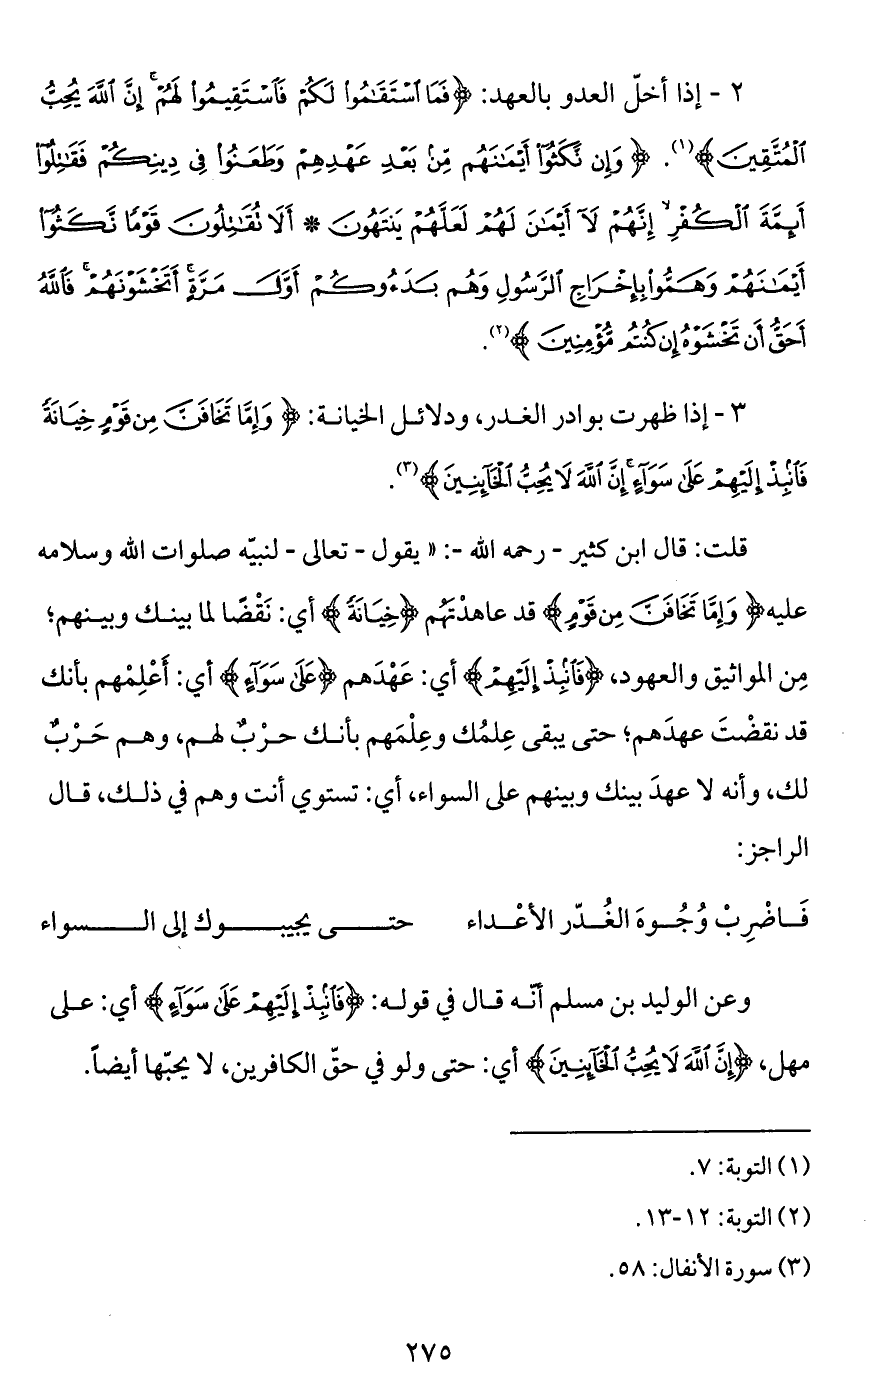 ٢ - إذا أخلّ العدو بالعهد: ﴿فَمَا ٱسْتَقَـٰمُوا۟ لَكُمْ فَٱسْتَقِيمُوا۟ لَهُمْ ۚ إِنَّ ٱللَّهَ يُحِبُّ
ٱلْمُتَّقِينَ﴾(١). ﴿وَإِن نَّكَثُوٓا۟ أَيْمَـٰنَهُم مِّنۢ بَعْدِ عَهْدِهِمْ وَطَعَنُوا۟ فِى دِينِكُمْ فَقَـٰتِلُوٓا۟
أَئِمَّةَ ٱلْكُفْرِ ۙ إِنَّهُمْ لَآ أَيْمَـٰنَ لَهُمْ لَعَلَّهُمْ يَنتَهُونَ * أَلَا تُقَـٰتِلُونَ قَوْمًا نَّكَثُوٓا۟
أَيْمَـٰنَهُمْ وَهَمُّوا۟ بِإِخْرَاجِ ٱلرَّسُولِ وَهُم بَدَءُوكُمْ أَوَّلَ مَرَّةٍ ۚ أَتَخْشَوْنَهُمْ ۚ فَٱللَّهُ
أَحَقُّ أَن تَخْشَوْهُ إِن كُنتُم مُّؤْمِنِينَ﴾(٢).
٣ - إذا ظهرت بوادر الغدر، ودلائل الخيانة: ﴿وَإِمَّا تَخَافَنَّ مِن قَوْمٍ خِيَانَةً
فَٱنۢبِذْ إِلَيْهِمْ عَلَىٰ سَوَآءٍ ۚ إِنَّ ٱللَّهَ لَا يُحِبُّ ٱلْخَآئِنِينَ﴾(٣).
قلت: قال ابن كثير - رحمه الله -: « يقول - تعالى - لنبيّه صلوات الله وسلامه
عليه﴿وَإِمَّا تَخَافَنَّ مِن قَوْمٍ﴾ قد عاهدْتَهُم ﴿خِيَانَةً﴾ أي: نَقْضًا لما بينك وبينهم؛
مِن المواثيق والعهود، ﴿فَٱنۢبِذْ إِلَيْهِمْ﴾ أي: عَهْدَهم ﴿عَلَىٰ سَوَآءٍ﴾ أي: أَعْلِمْهم بأنك
قد نقضْتَ عهدَهم؛ حتى يبقى عِلمُك وعِلْمَهم بأنك حرْبٌ لهم، وهم حَرْبٌ
لك، وأنه لا عهدَ بينك وبينهم على السواء، أي: تستوي أنت وهم في ذلك، قال
الراجز:
فَاضْرِبْ وُجُوهَ الغُدّر الأعْداء حتى يجيبوك إلى السواء
وعن الوليد بن مسلم أنّه قال في قوله: ﴿فَٱنۢبِذْ إِلَيْهِمْ عَلَىٰ سَوَآءٍ﴾ أي: على
مهل، ﴿إِنَّ ٱللَّهَ لَا يُحِبُّ ٱلْخَآئِنِينَ﴾ أي: حتى ولو في حقّ الكافرين، لا يحبّها أيضاً.
(١) التوبة: ٧.
(٢) التوبة: ١٢-١٣.
(٣) سورة الأنفال: ٥٨.
٢٧٥